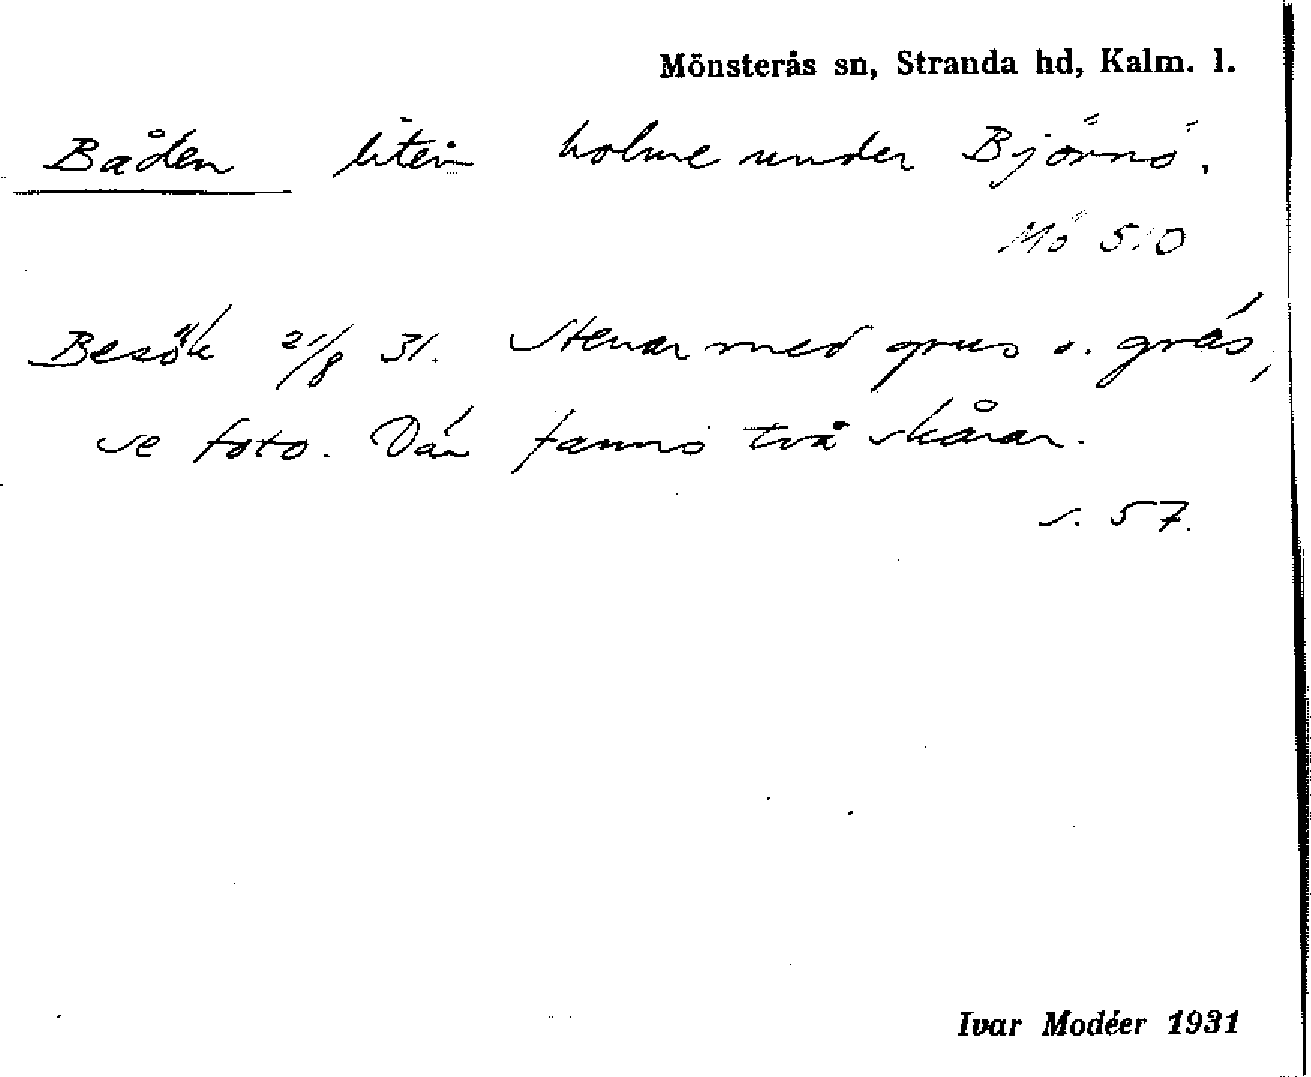 Mönsterås sn, Stranda hd, Kalm. l.
Båden liten holme under Björnö.
Mö 5:0
Besök 21/8 31. Stenar med grus o. gräs,
se foto. Där fanns två skårar.
s. 57.
Ivar Modéer 1931